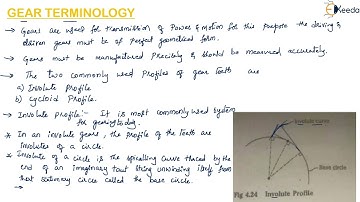 GEAR TERMINOLOGY
Keeda
→ Gears are used for transmission of Power & motion for this purpose the driving &
driven gears must be of Perfect geometrical form.
→ Gears must be manufactured Precisely & should be measured accurately.
→ The two commonly used Profiles of gear teeth are
a) Involute Profile
b) Cycloid Profile.
→ Involute profile:- It is most commonly used system
for gearing today.
* In an involute gears, the profile of the teeth are
involutes of a circle.
* Involute of a circle is the spiralling curve traced by the
end of an imaginary taut string unwinding itself from
that stationary circle called the base circle.
→
Involute curve
Base circle
Fig 4.24 Involute Profile